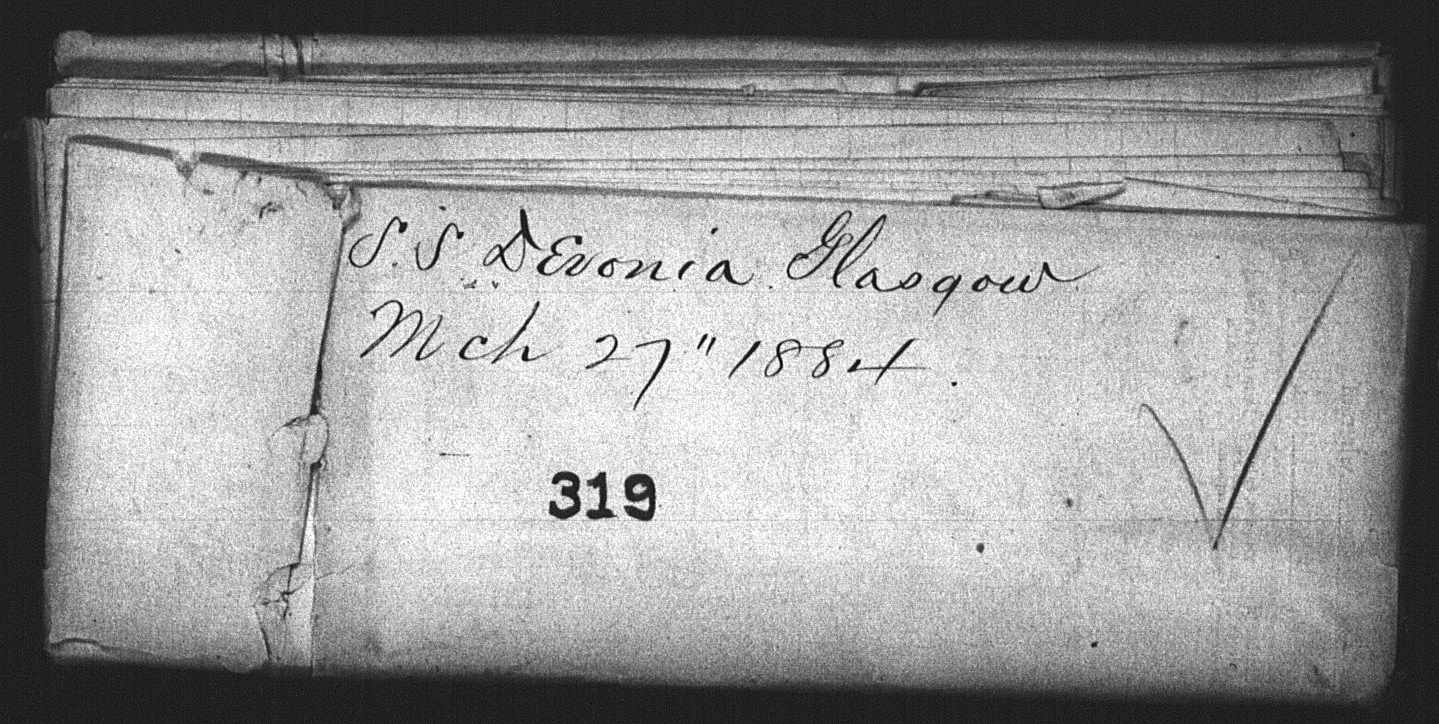 S.S. DEvonia Glasgow
Mch 27" 1884.
319